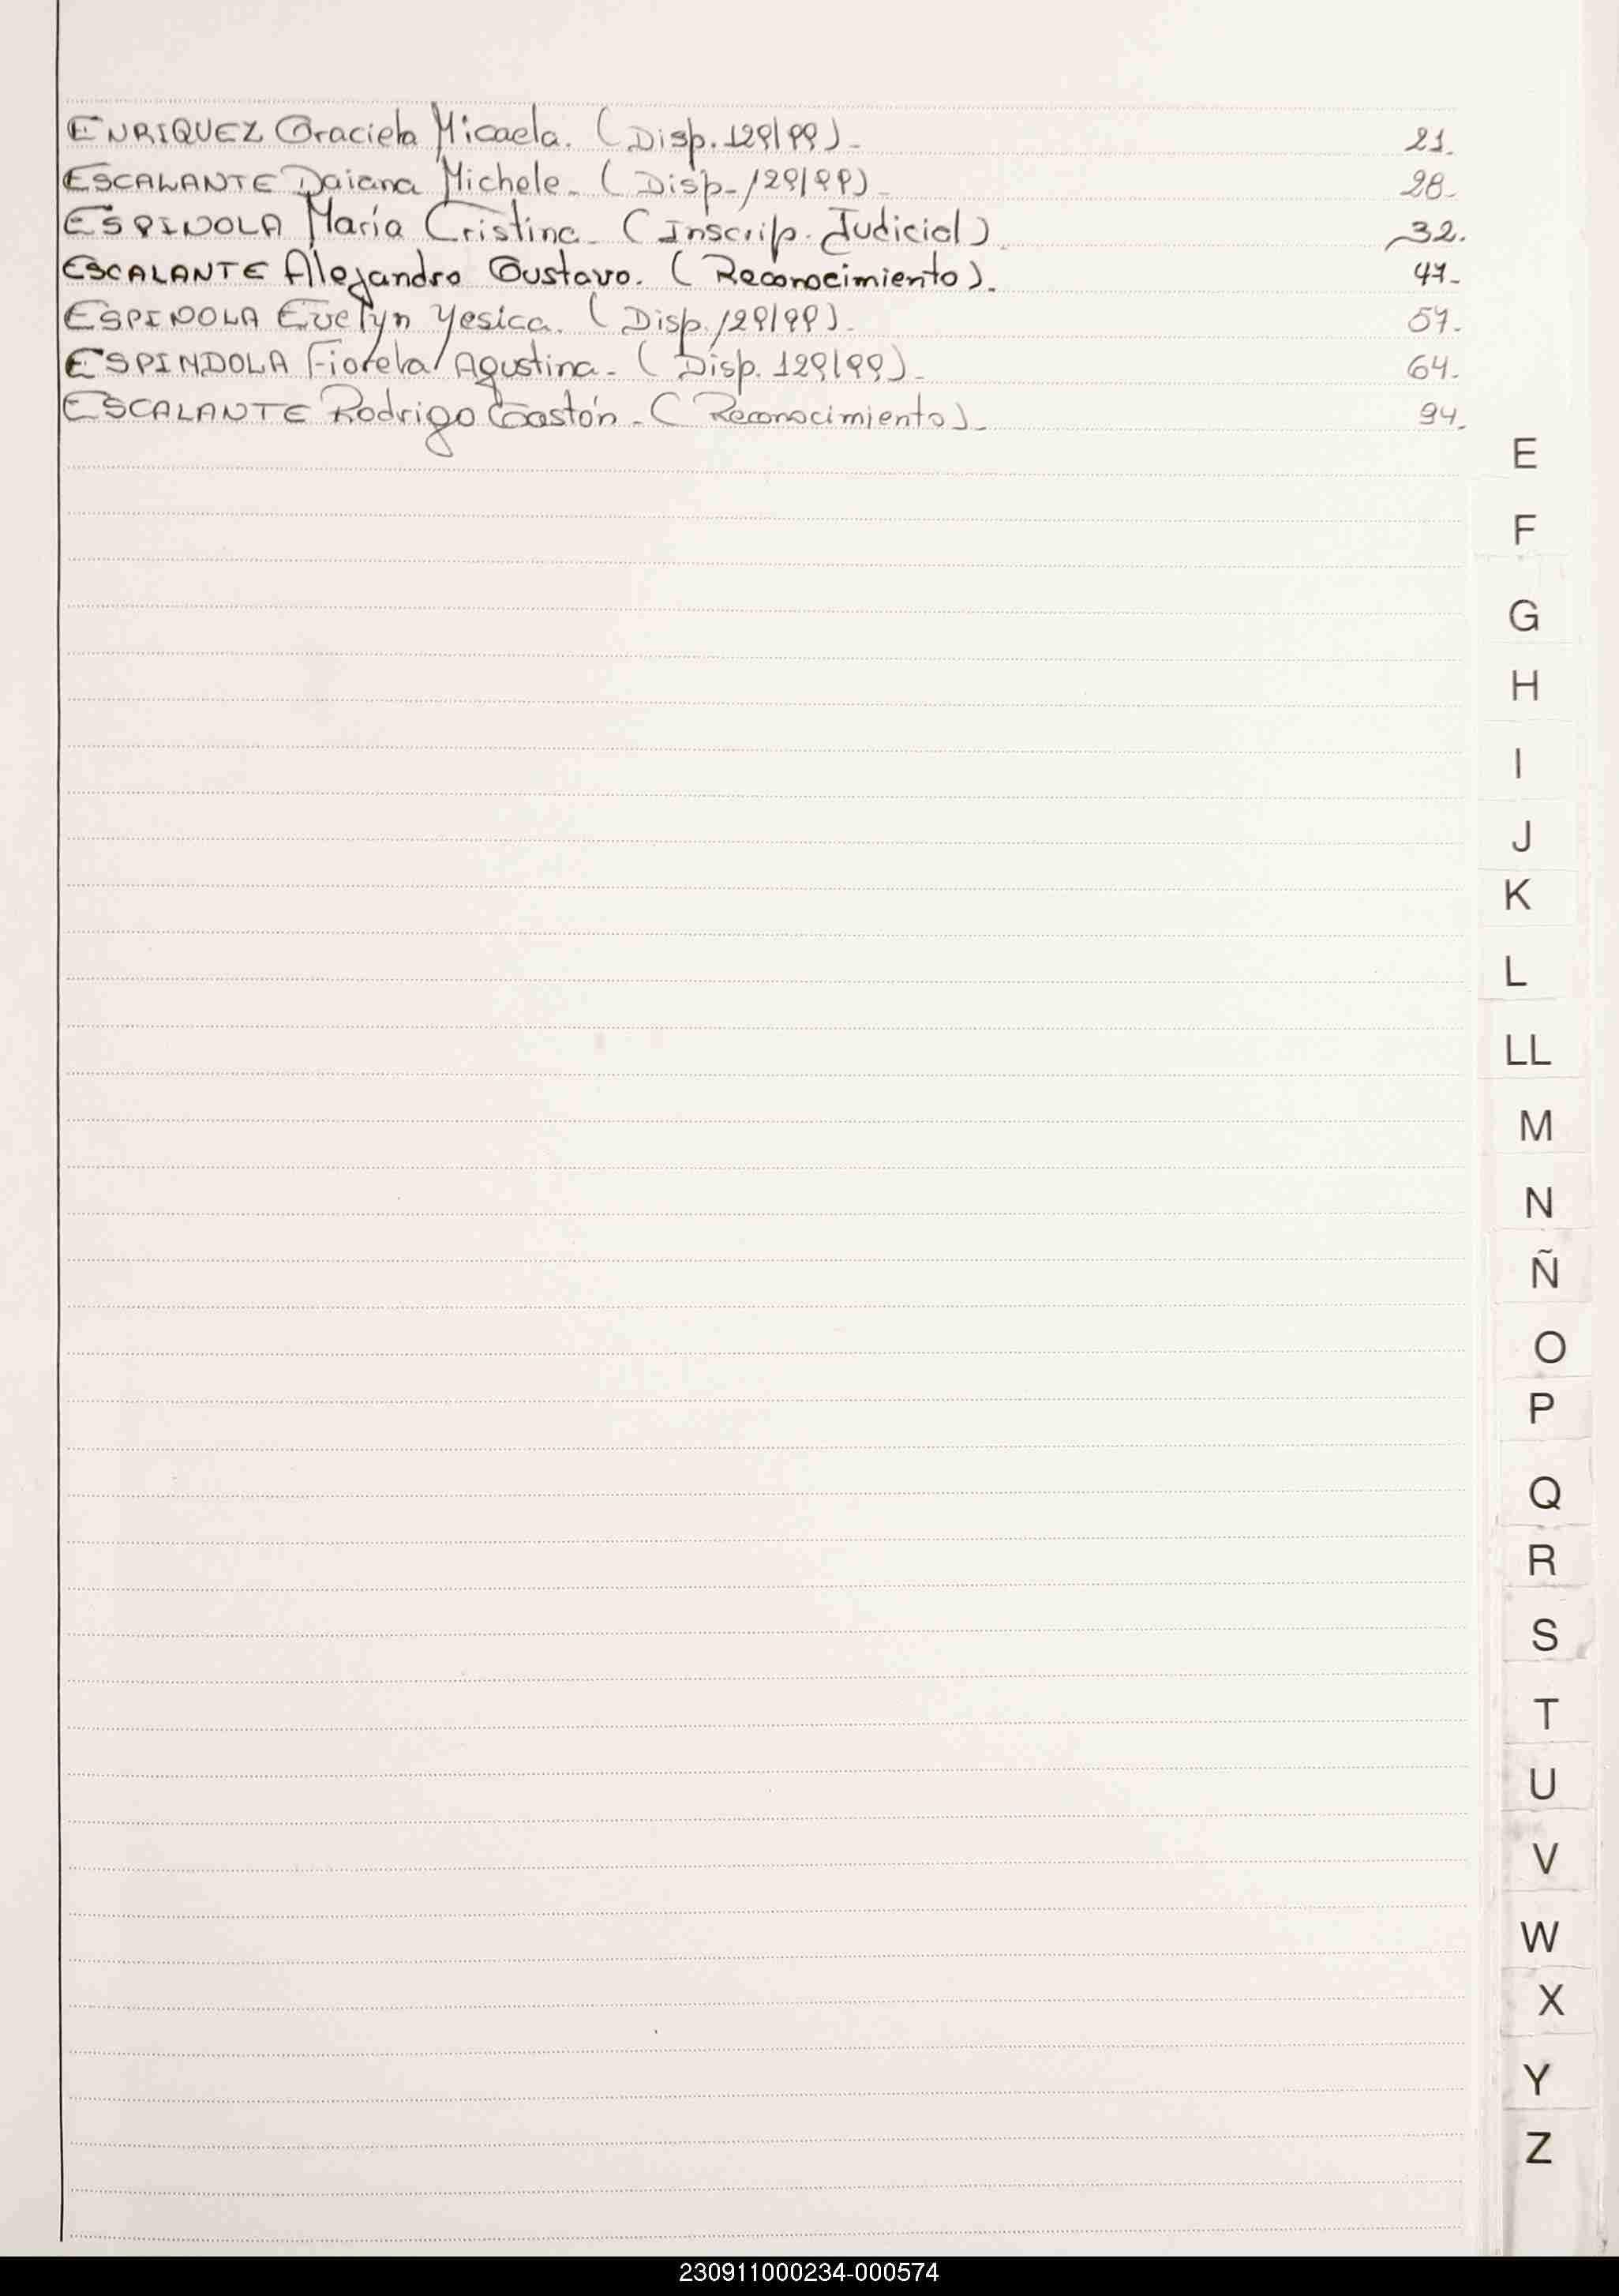 ENRIQUEZ Graciela Micaela. (Disp. 129/99).- 21.
ESCALANTE Daiana Michele.- (Disp.- 129/99).- 28.-
ESPINOLA María Cristina.- (Inscrip. Judicial). 32.
ESCALANTE Alejandro Gustavo. (Reconocimiento).- 47.-
ESPINOLA Evelyn Yesica. (Disp. 129/99).- 57.-
ESPINDOLA Fiorela Agustina.- (Disp. 129/99).- 64.-
ESCALANTE Rodrigo Gastón.- (Reconocimiento).- 94.
E
F
G
H
I
J
K
L
LL
M
N
Ñ
O
P
Q
R
S
T
U
V
W
X
Y
Z
230911000234-000574